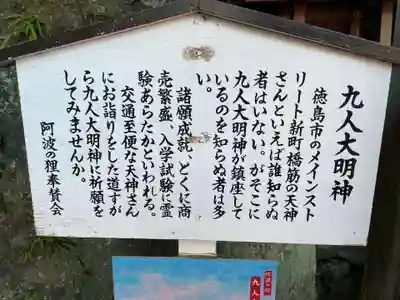 九人大明神
徳島市のメインスト
リート新町橋筋の天神
さんといえば誰知らぬ
者はいない。がそこに
九人大明神が鎮座して
いるのを知らぬ者は多
い。
諸願成就、とくに商
売繁盛、入学試験に霊
験あらたかといわれる。
交通至便な天神さん
にお詣りをした道すが
ら九人大明神に祈願を
してみませんか。
阿波の狸奉賛会
九人